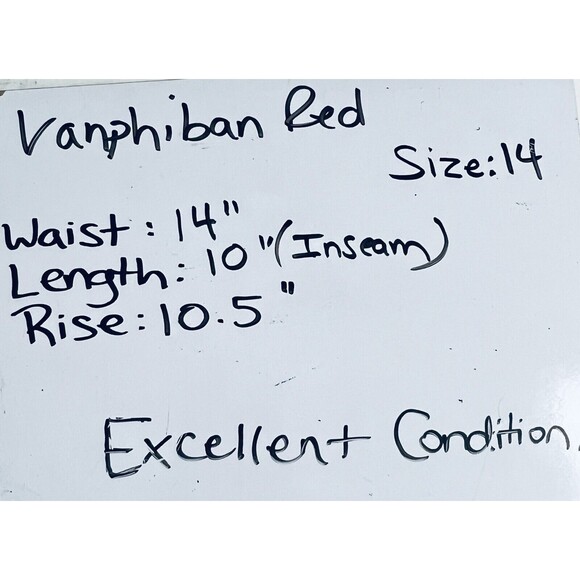 Vanphiban Red
Size: 14
Waist: 14"
Length: 10" (Inseam)
Rise: 10.5"
Excellent Condition.